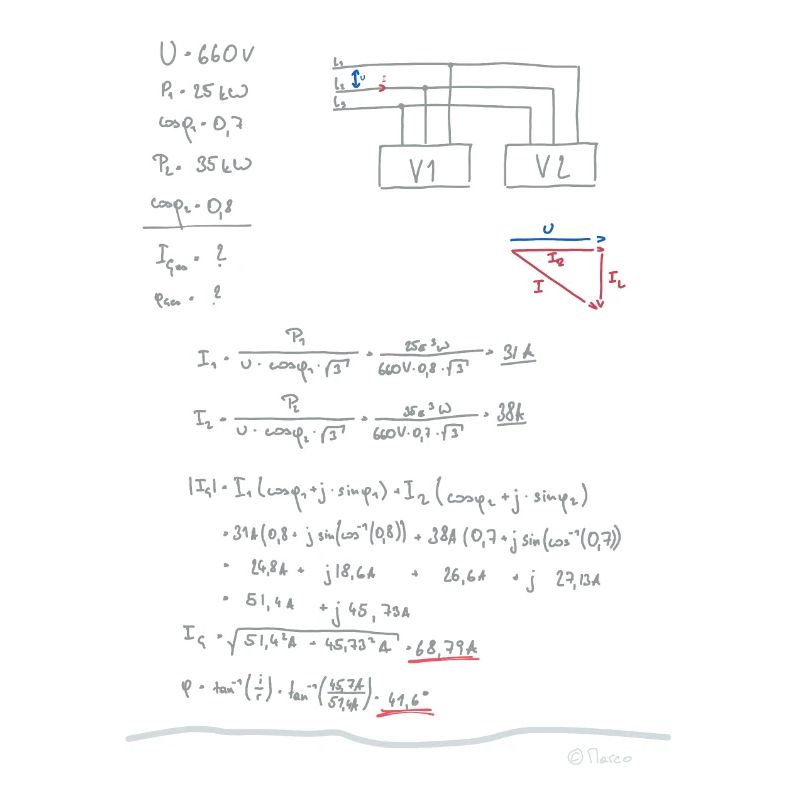 U = 660V
P₁ = 25 kW
cosφ₁ = 0,7
P₂ = 35 kW
cosφ₂ = 0,8
I_Ges = ?
φ_Ges = ?
L₁
L₂ U I
L₃
V1 V2
U
I_R
I I_L
I₁ = P₁ / (U · cosφ₁ · √3) = 25ε³W / (660V · 0,8 · √3) = 31A
I₂ = P₂ / (U · cosφ₂ · √3) = 35ε³W / (660V · 0,7 · √3) = 38A
|I_G| = I₁ (cosφ₁ + j · sinφ₁) + I₂ (cosφ₂ + j · sinφ₂)
= 31A (0,8 + j sin(cos⁻¹(0,8)) + 38A (0,7 + j sin(cos⁻¹(0,7))
= 24,8A + j 18,6A + 26,6A + j 27,13A
= 51,4A + j 45,73A
I_G = √(51,4²A + 45,73²A) = 68,79A
φ = tan⁻¹(i/r) = tan⁻¹(45,7A/51,4A) = 41,6°
© Marco